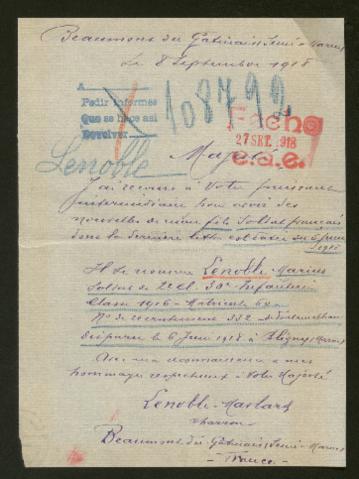 Beaumont du Gâtinais (Seine & Marne)
le 8 Septembre 1918
A
Pedir informes
Que se hace así
Devolver
108792
Fecha
27 SET. 1918
c.a.e.
Lenoble
Majesté
J'ai recours à Votre puissante
intermédiaire pour avoir des
nouvelles de mon fils Soldat français
dont la dernière lettre est datée du 5 Juin
1918
Il se nomme Lenoble Marius
Soldat de 2e Cl. 30e Infanterie
Classe 1916 - Matricule
No de recrutement 332
disparu le 6 Juin 1918 à Bligny (Marne)
ma reconnaissance & mes
hommages respectueux - Votre Majesté
Lenoble
charron
Beaumont du Gâtinais (Seine & Marne)
- France -